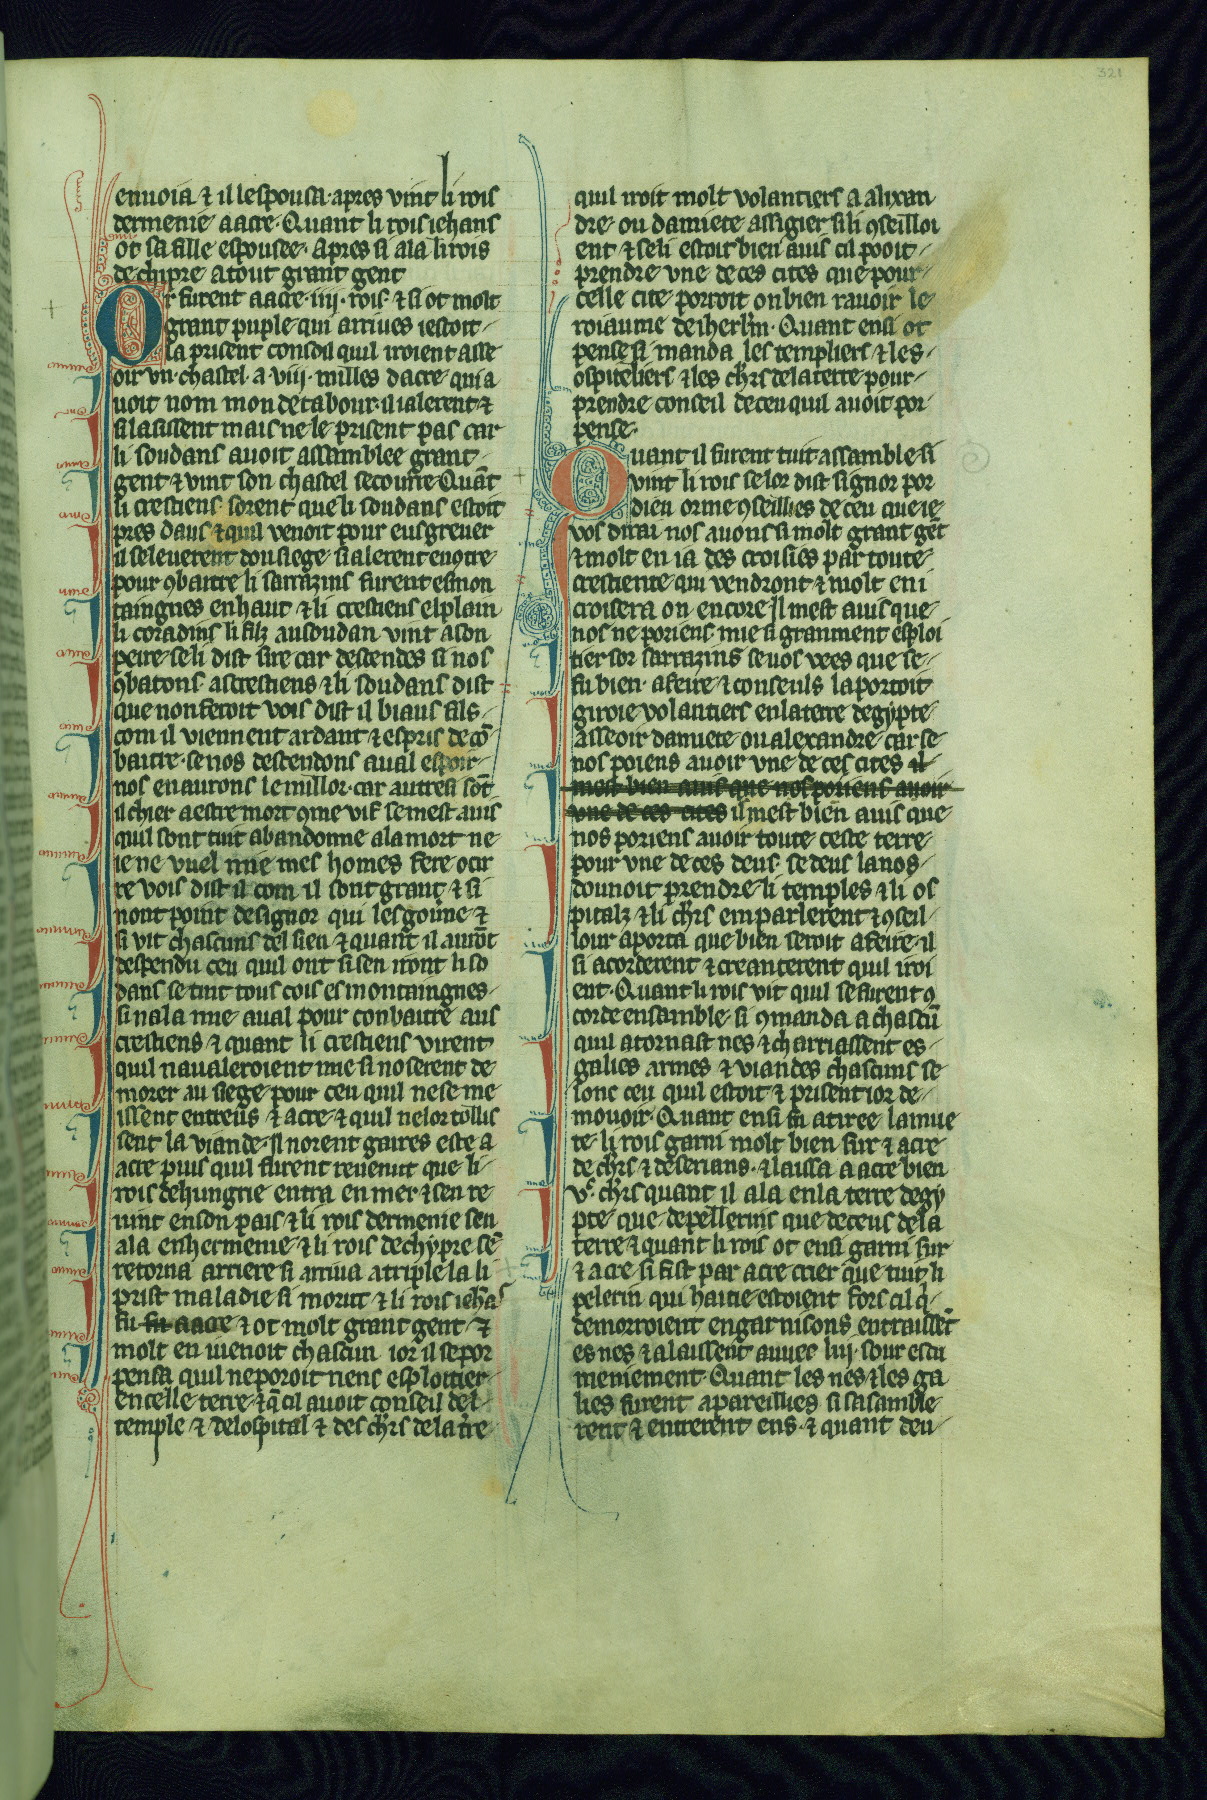 321
enuoia ⁊ il lespousa. apres vint li rois
dermenie a acre. Quant li rois iehans
ot sa fille espousee. Apres si ala li rois
de chipre a tout grant gent
Or furent a acre .iiij. rois. ⁊ si ot molt
grant puple qui arriues iestoit
la prisent consoil quil iroient asse
oir vn chastel a viij. milles dacre qui a
uoit nom mon de tabour. il i alerent ⁊
si lasissent mais ne le prisent pas car
li soudans auoit assamblee grant
gent ⁊ vint son chastel secourre Quāt
li crestiens sorent que li soudans estoit
pres daus ⁊ quil venoit pour eus greuer
il se leuerent dou siege si alerent encōtre
pour ꝯbatre li sarrazins furent es mon
taingnes en haut ⁊ li crestiens el plain
li coradins li filz au soudan vint a son
peire se li dist sire car descendes si nos
ꝯbatons as crestiens ⁊ li soudans dist
que non feroit vois dist il biaus fils
com il viennent ardant ⁊ espris de cō
batre. se nos descendons aual espoir
nos en aurons le millor. car autresi sōt
il chier a estre mort ꝯme vif se mest auis
quil sont tuit abandonne a la mort ne
ie ne vuel mie mes homes fere ocir
re vois dist il com il sont grant ⁊ si
nont point de signor qui les gouīne ⁊
si vit chascuns del sien ⁊ quant il aurōt
despendu ceu quil ont si sen iront li so
dans se tint tous cois es montaingnes
si nala mie aual pour conbatre aus
crestiens ⁊ quant li crestiens virent
quil naualeroient mie si noserent de
morer au siege pour ceu quil ne se me
issent entreus ⁊ acre ⁊ quil ne lor tollis
sent la viande. Il norent gaires este a
acre puis quil furent reuenut que li
rois de hungrie entra en mer ⁊ sen re
uint en son pais ⁊ li rois dermenie sen
ala en hermenie ⁊ li rois de chypre sē
retorna arriere si arriua a triple la li
prist maladie si morut ⁊ li rois iehās
fu fu a acre ⁊ ot molt grant gent ⁊
molt en uienoit chascun ior il se por
pensa quil ne poroit riens esploitier
en celle terre ⁊ q̄ cil auoit conseil del
temple ⁊ de lospital ⁊ des ch'rs de la t're
quil iroit molt volantiers a alixan
dre ou damiete assigier si li ꝯseilloi
ent ⁊ se li estoit bien auis cil pooit
prendre vne de ces cites que pour
celle cite porroit on bien rauoir le
roiaume de iherl'm. Quant ensi ot
pense si manda les templiers ⁊ les
ospiteliers ⁊ les ch'rs de la terre pour
prendre conseil de ceu quil auoit por
pense.
Quant il furent tuit assamble si
vint li rois se lor dist signor por
dieu or me ꝯseillies de ceu que ie
vos dirai nos auons si molt grant gēt
⁊ molt en i a des croisies par toute
crestiente qui vendront ⁊ molt en i
croisera on encore Il mest auis que
nos ne poriens mie si granment esploi
tier sor sarrazins se vos vees que se
fu bien a feire ⁊ conseuls la portoit
giroie volantiers en la terre degypte
asseoir damiete ou alexandre car se
nos poiens auoir vne de ces cites il
mest bien auis que nos poriens auoir
vne de ces cites il mest bien auis que
nos poriens auoir toute ceste terre
pour vne de ces deus. se deus la nos
dounoit prendre li temples ⁊ li os
pitalz ⁊ li ch'rs em parlerent ⁊ ꝯseil
lour aporta que bien seroit a feire. il
si acorderent ⁊ creanterent quil iroi
ent. Quant li rois vit quil se furent ꝯ
corde ensamble si ꝯmanda a chascū
quil atornast nes ⁊ charriassent es
galies armes ⁊ viandes chascuns se
lonc ceu quil estoit ⁊ prisent ior de
mouoir. Quant ensi fu atiree la mue
te. li rois garni molt bien sur ⁊ acre
de ch'rs ⁊ de serians. ⁊ laissa a acre bien
vc. ch'rs quant il ala en la terre degy
pte que de pellerins que de ceus de la
terre ⁊ quant li rois ot ensi garni sur
⁊ acre si fist par acre crier que tuit li
pelerin qui haitie estoient fors cil q'
demorroient en garnisons entraissēt
es nes ⁊ alaissent auuec lui. sour escu
meniement Quant les nes ⁊ les ga
lies furent apareillies si sasamble
rent ⁊ entrerent ens. ⁊ quant deu